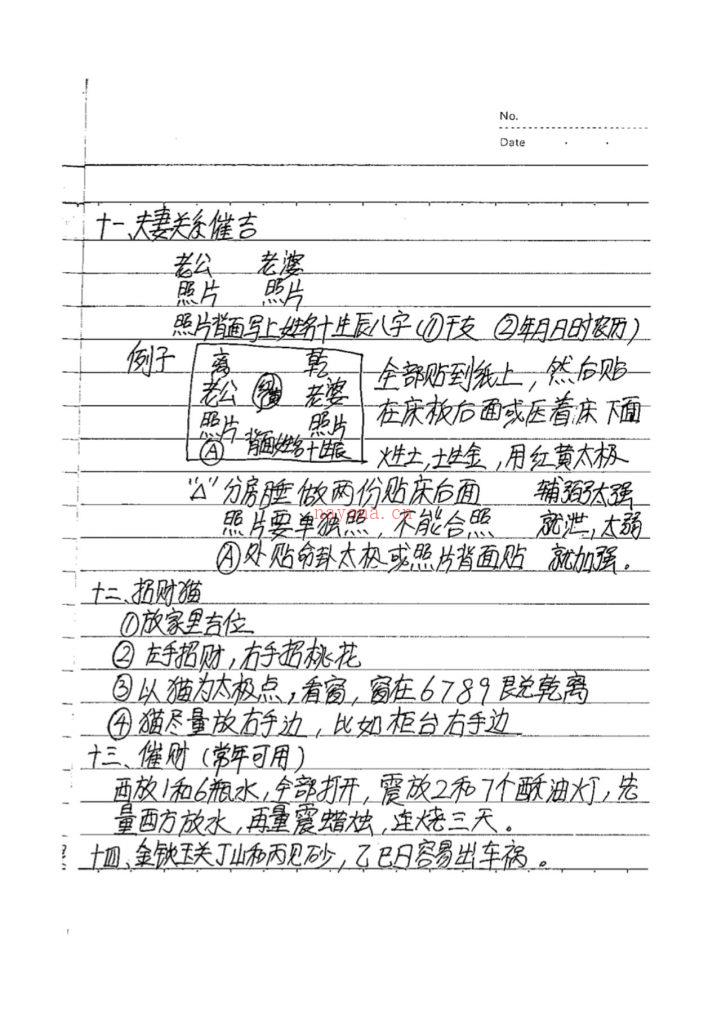 No.
Date
十一、夫妻关系催吉
老公 老婆
照片 照片
照片背面写上姓名十生辰八字(①干支 ②年月日时农历)
例子 离 乾 全部贴到纸上,然后贴
老公 红黄 老婆 在床板后面或压着床下面
照片 照片
Ⓐ 背面姓名十生辰 火生土,土生金,用红黄太极
"△"分房睡做两份贴床后面 辅弼太强
照片要单独照,不能合照 就泄,太弱
nayona.cn
Ⓐ处贴命卦太极或照片背面贴 就加强。
十二、招财猫
①放家里吉位
②左手招财,右手招桃花
③以猫为太极点,看窗,窗在6789艮兑乾离
④猫尽量放右手边,比如柜台右手边
十三、催财(常年可用)
西放1和6瓶水,全部打开,震放2和7个酥油灯,先
量西方放水,再量震蜡烛,连烧三天。
十四、金锁玉关丁山和丙见砂,乙巳日容易出车祸。